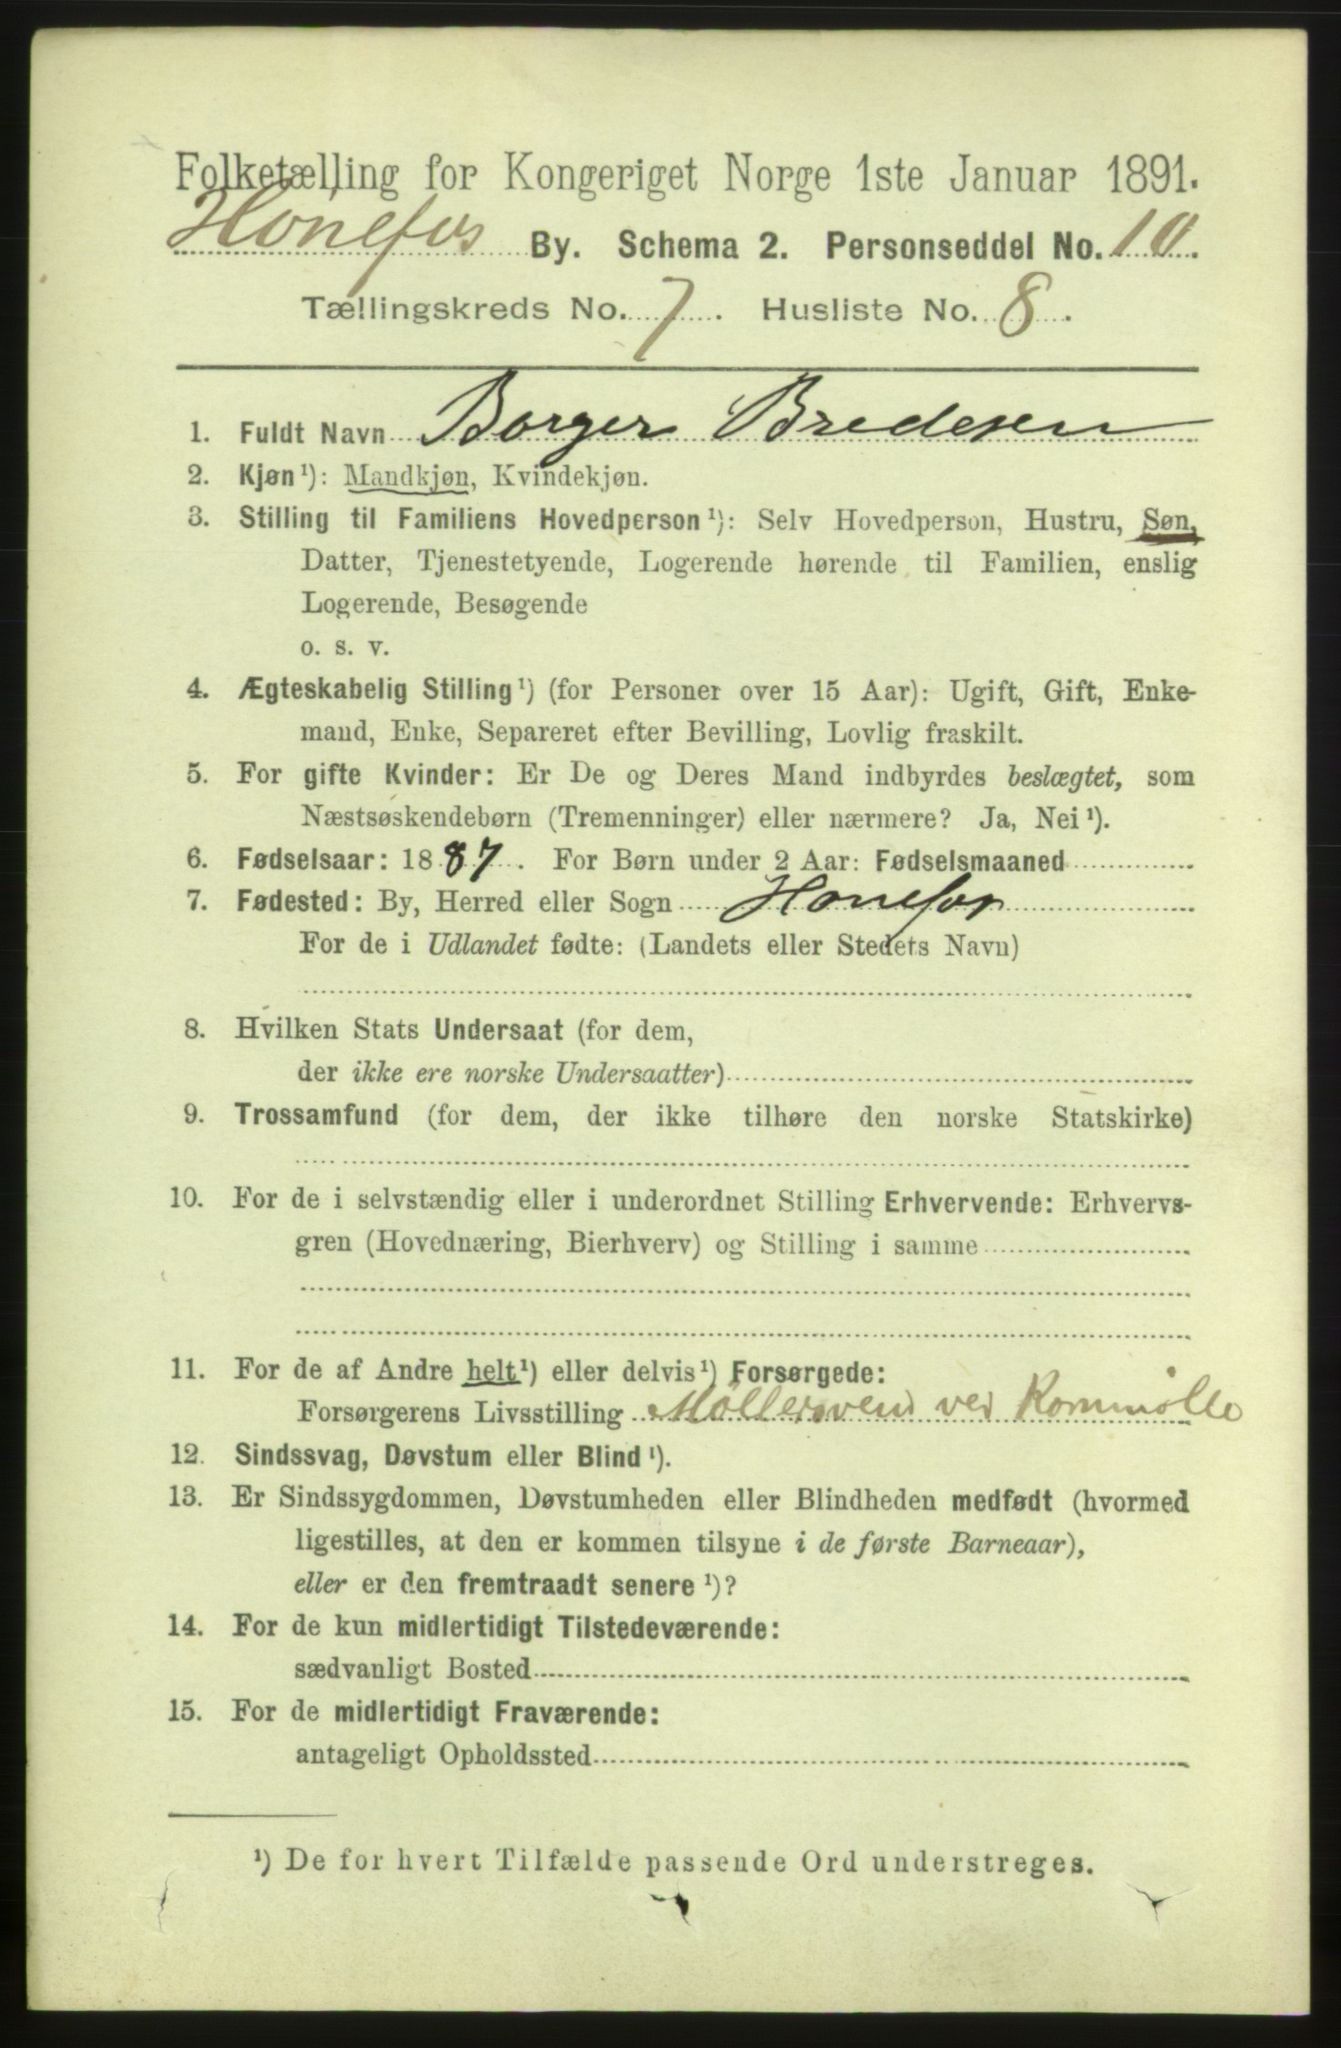 Folketælling for Kongeriget Norge 1ste Januar 1891.
Hönefos By. Schema 2. Personseddel No. 10.
Tællingskreds No. 7. Husliste No. 8.
1. Fuldt Navn Borger Bredesen
2. Kjøn¹): Mandkjøn, Kvindekjøn.
3. Stilling til Familiens Hovedperson¹): Selv Hovedperson, Hustru, Søn,
Datter, Tjenestetyende, Logerende hørende til Familien, enslig
Logerende, Besøgende
o. s. v.
4. Ægteskabelig Stilling¹) (for Personer over 15 Aar): Ugift, Gift, Enke-
mand, Enke, Separeret efter Bevilling, Lovlig fraskilt.
5. For gifte Kvinder: Er De og Deres Mand indbyrdes beslægtet, som
Næstsøskendebørn (Tremenninger) eller nærmere? Ja, Nei¹).
6. Fødselsaar: 1887. For Børn under 2 Aar: Fødselsmaaned
7. Fødested: By, Herred eller Sogn Honefos
For de i Udlandet fødte: (Landets eller Stedets Navn)
8. Hvilken Stats Undersaat (for dem,
der ikke ere norske Undersaatter)
9. Trossamfund (for dem, der ikke tilhøre den norske Statskirke)
10. For de i selvstændig eller i underordnet Stilling Erhvervende: Erhvervs-
gren (Hovednæring, Bierhverv) og Stilling i samme
11. For de af Andre helt¹) eller delvis¹) Forsørgede:
Forsørgerens Livsstilling Möllersvend ved Kornmölle
12. Sindssvag, Døvstum eller Blind¹).
13. Er Sindssygdommen, Døvstumheden eller Blindheden medfødt (hvormed
ligestilles, at den er kommen tilsyne i de første Barneaar),
eller er den fremtraadt senere¹)?
14. For de kun midlertidigt Tilstedeværende:
sædvanligt Bosted
15. For de midlertidigt Fraværende:
antageligt Opholdssted
¹) De for hvert Tilfælde passende Ord understreges.